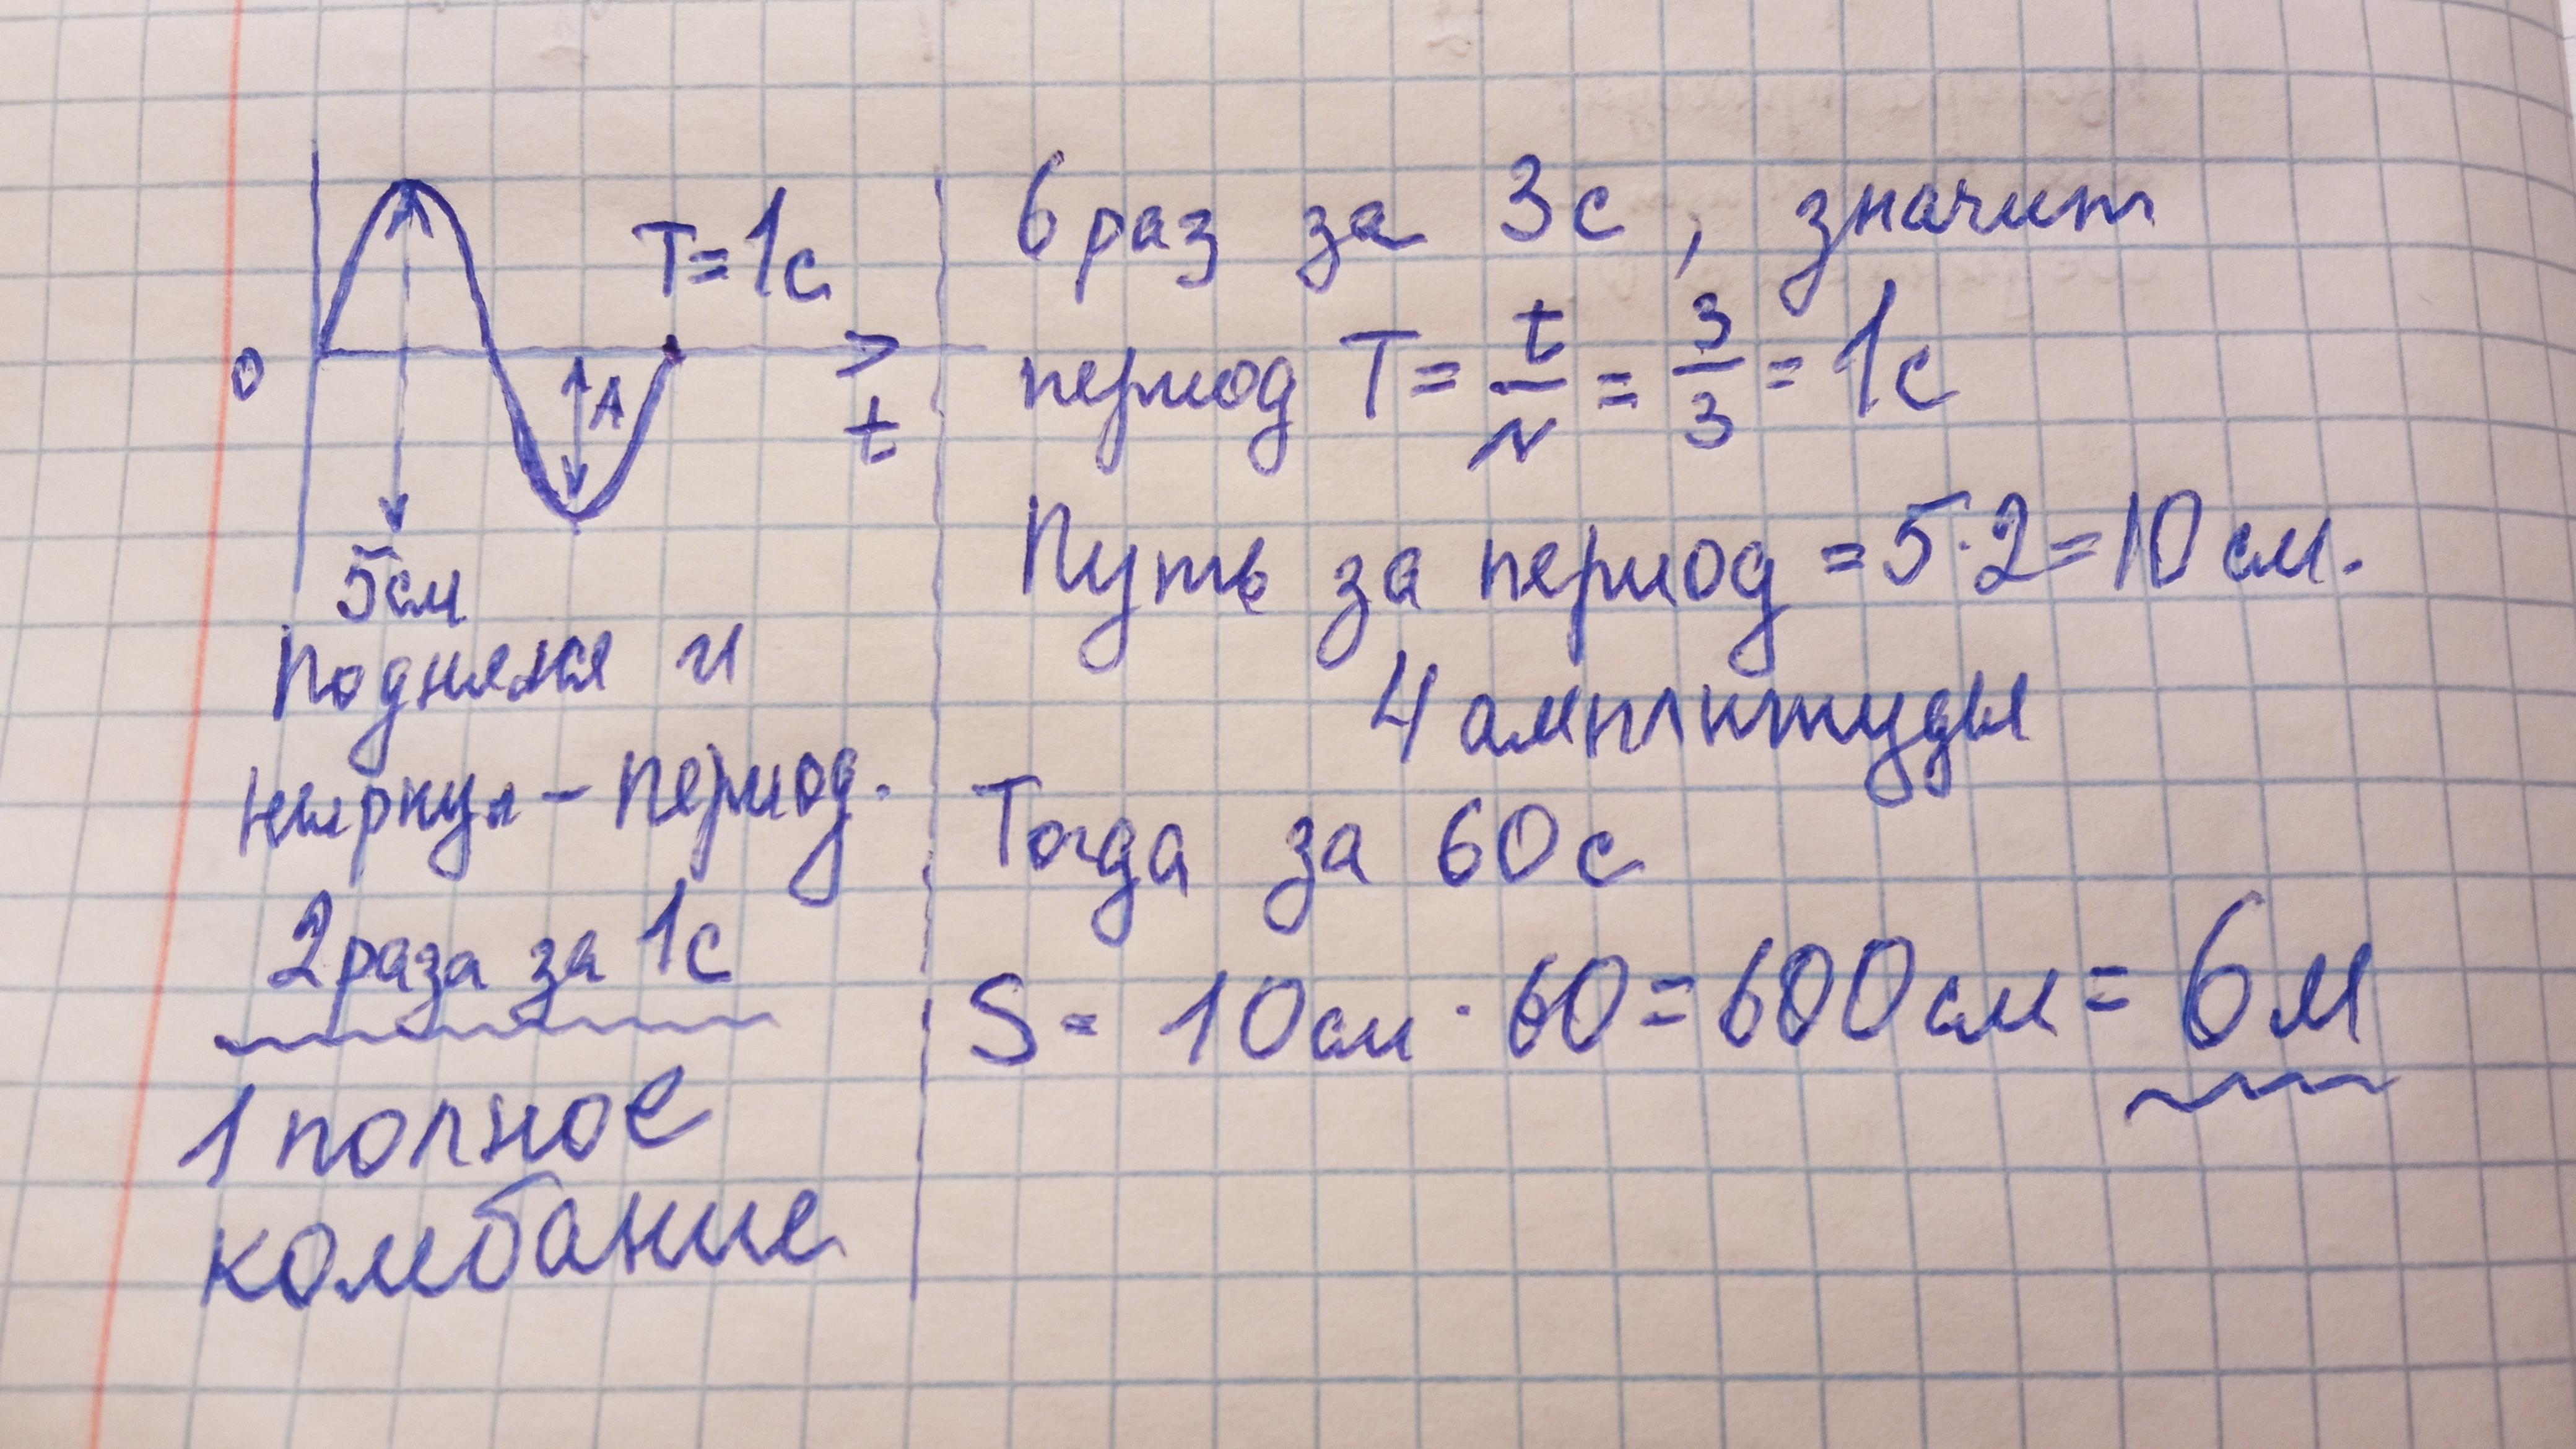 T=1с
0
A
t
5см
Поднялся и
нырнул – период.
2 раза за 1с
1 полное
колебание
6 раз за 3с, значит
период T = t/N = 3/3 = 1с
Путь за период = 5·2=10 см.
4 амплитуды
Тогда за 60с
S = 10см · 60 = 600см = 6м